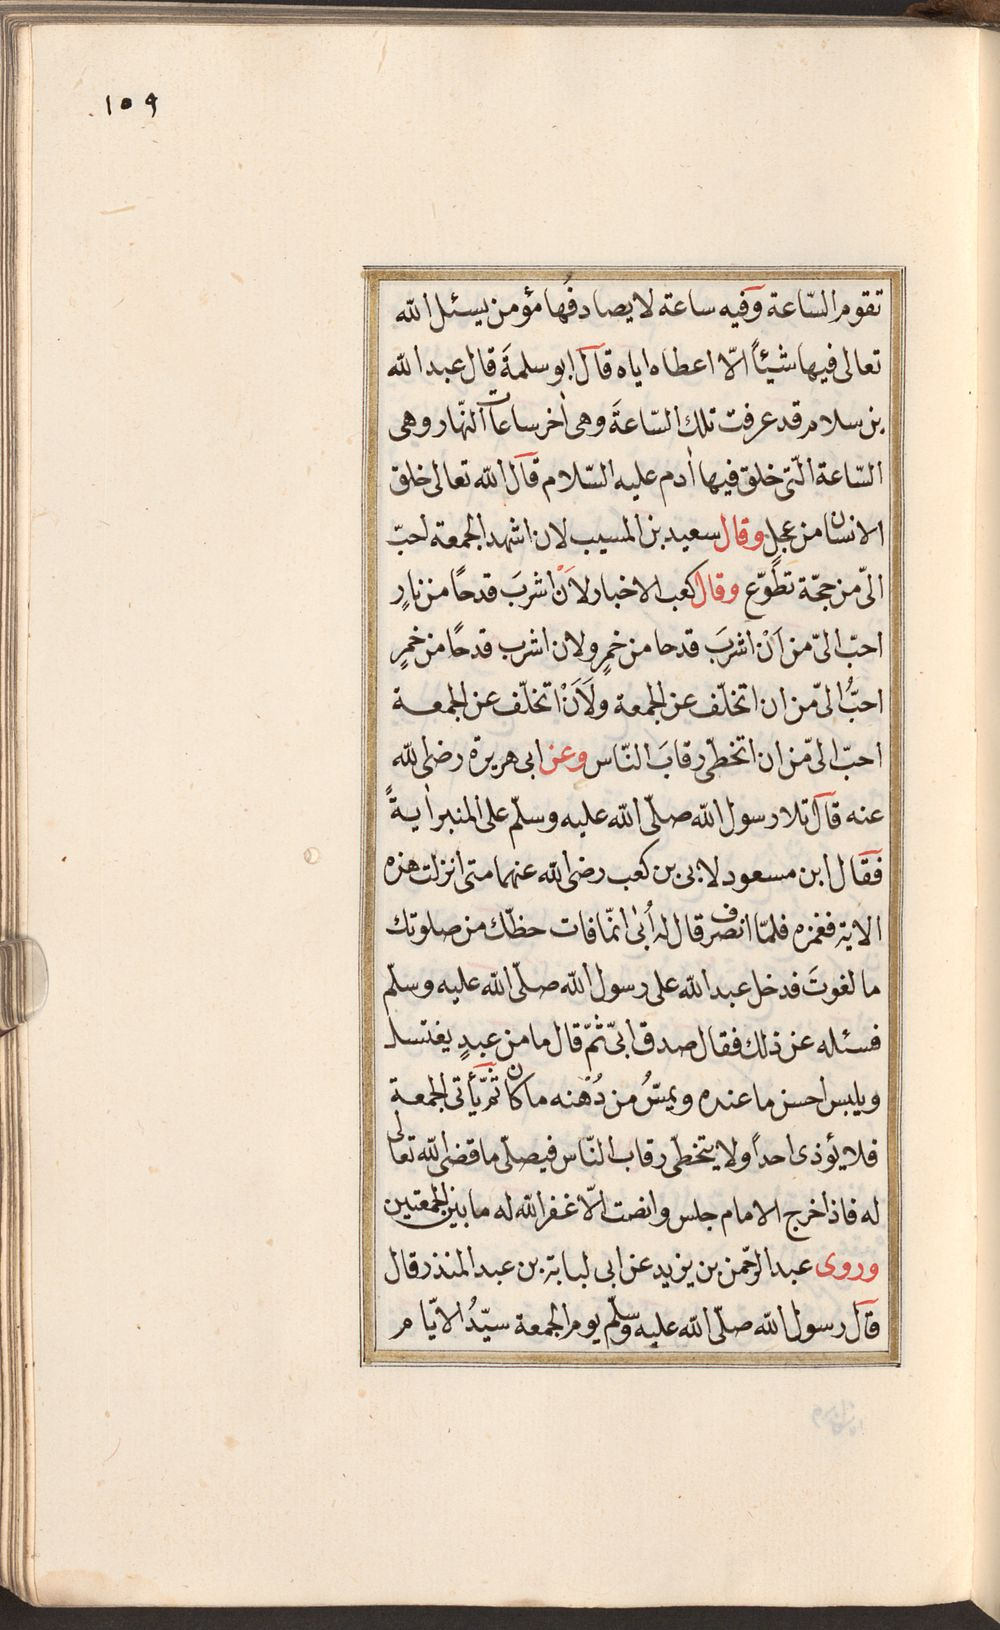 ١٥٩
تقوم السّاعة وفيه ساعة لا يصادفُها مؤمن يسئل الله
تعالى فيها شيئاً الّا اعطاه اياه قال ابو سلمةَ قال عبد الله
بن سلام قد عرفت تلك السّاعةَ وهى أخر ساعات النّهار وهى
السّاعة الّتى خلق فيها أدم عليه السّلام قال الله تعالى خلق
الانسان من عجل وقال سعيد بن المسيب لان اشهد الجمعة احبّ
الىّ من حجّة تطوّع وقال كعب الاخبار لاَنْ اشربَ قدحًا من نارٍ
احبّ الىّ من اَنْ اشربَ قدحا من خمرٍ ولان اشرب قدحًا من خمرٍ
احبُّ الىّ من ان اتخلّف عن الجمعة ولَاَنْ اتخلّف عن الجمعة
احبّ الىّ من ان اتخطّى رقابَ النّاس وعن ابى هريرة رضى الله
عنه قال تلا رسول الله صلّى الله عليه وسلّم على المنبر أيةً
فقال ابن مسعود لابى بن كعب رضى الله عنهما متى انزلت هذه
الاية فغمزه فلمّا انصرف قال له أُبى انّما فات حظّك من صلوتك
ما لغوتَ فدخل عبد الله على رسول الله صلّى الله عليه وسلّم
فسئله عن ذلك فقال صدق ابىّ ثمّ قال ما من عبدٍ يغتسل
ويلبس احسن ما عنده ويمسُّ من دُهنه ما كان ثمّ يأتى الجمعة
فلا يؤذى احداً ولا يتخطّى رقاب النّاس فيصلّى ما قضى الله تعالى
له فاذا خرج الامام جلس وانصت الّا غفر الله له ما بين الجمعتين
وروى عبد الرّحمن بن يزيد عن ابى لبابة بن عبد المنذر قال
قال رسول الله صلّى الله عليه وسلّم يوم الجمعة سيّدُ الايّام